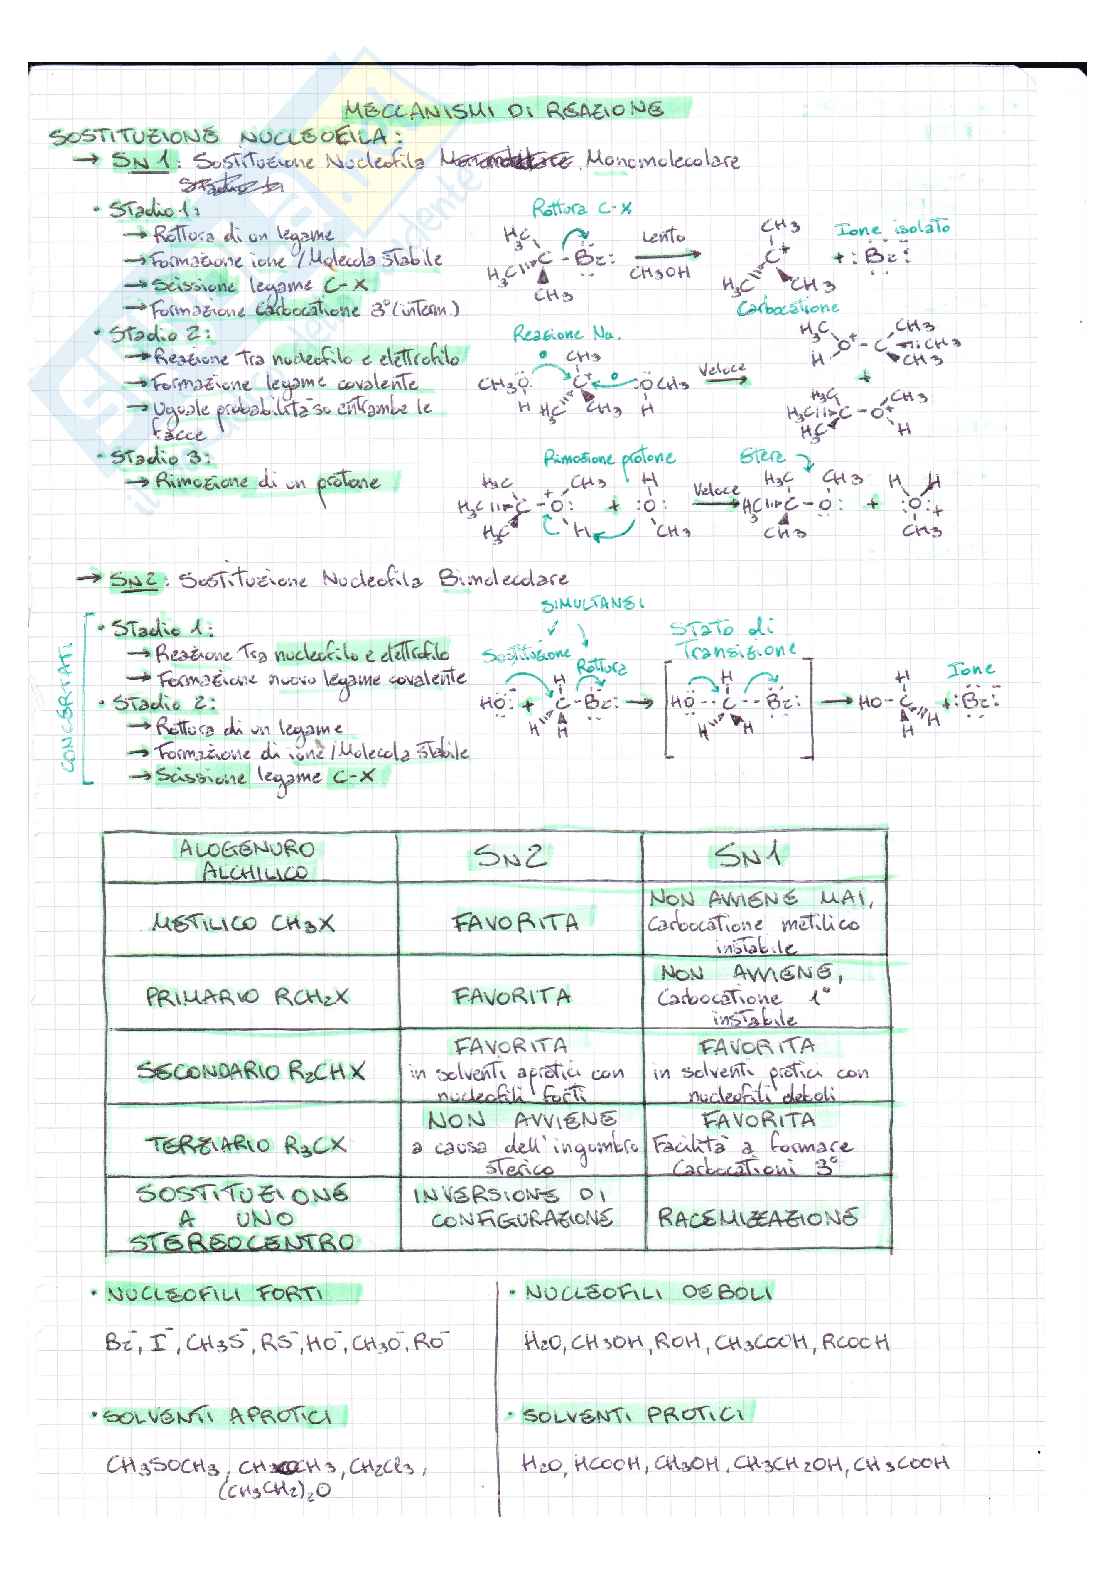 MECCANISMI DI REAZIONE
SOSTITUZIONE NUCLEOFILA:
→ SN1: Sostituzione Nucleofila Monomolecolare
• Stadio 1:
→ Rottura di un legame
→ Formazione ione / Molecola stabile
→ Scissione legame C-X
→ Formazione carbocatione 3° (interm.)
Rottura C-X
H3C
H3C C - Br:
CH3
Lento
CH3OH
CH3
C+
H3C CH3
Carbocatione
Ione isolato
+ :Br:
• Stadio 2:
→ Reazione tra nucleofilo e elettrofilo
→ Formazione legame covalente
→ Uguale probabilità su entrambe le
facce
Reazione Nu.
CH3
CH3O: C+ :OCH3
H H3C CH3 H
Veloce
H3C CH3
O+ - C CH3
H CH3
+
H3C CH3
H3C C - O+
H3C H
• Stadio 3:
→ Rimozione di un protone
Rimozione protone
H3C CH3 H
H3C C - O: + :O:
H3C H CH3
Veloce
Etere
H3C CH3
H3C C - O:
CH3
+
H H
:O+
CH3
→ SN2: Sostituzione Nucleofila Bimolecolare
CONCERTATI
• Stadio 1:
→ Reazione tra nucleofilo e elettrofilo
→ Formazione nuovo legame covalente
• Stadio 2:
→ Rottura di un legame
→ Formazione di ione / Molecola stabile
→ Scissione legame C-X
SIMULTANEI
Sostituzione Rottura
H
HO:- + C - Br: →
H H
Stato di
Transizione
H
HO -- C -- Br:
H H
→
H
HO - C H
H
Ione
+ :Br:-
ALOGENURO
ALCHILICO
SN2
SN1
METILICO CH3X
FAVORITA
NON AVVIENE MAI,
Carbocatione metilico
instabile
PRIMARIO RCH2X
FAVORITA
NON AVVIENE,
Carbocatione 1°
instabile
SECONDARIO R2CHX
FAVORITA
in solventi aprotici con
nucleofili forti
FAVORITA
in solventi protici con
nucleofili deboli
TERZIARIO R3CX
NON AVVIENE
a causa dell'ingombro
sterico
FAVORITA
Facilità a formare
Carbocationi 3°
SOSTITUZIONE
A UNO
STEREOCENTRO
INVERSIONE DI
CONFIGURAZIONE
RACEMIZZAZIONE
• NUCLEOFILI FORTI
Br-, I-, CH3S-, RS-, HO-, CH3O-, RO-
• NUCLEOFILI DEBOLI
H2O, CH3OH, ROH, CH3COOH, RCOOH
• SOLVENTI APROTICI
CH3SOCH3, CH3COCH3, CH2Cl2,
(CH3CH2)2O
• SOLVENTI PROTICI
H2O, HCOOH, CH3OH, CH3CH2OH, CH3COOH